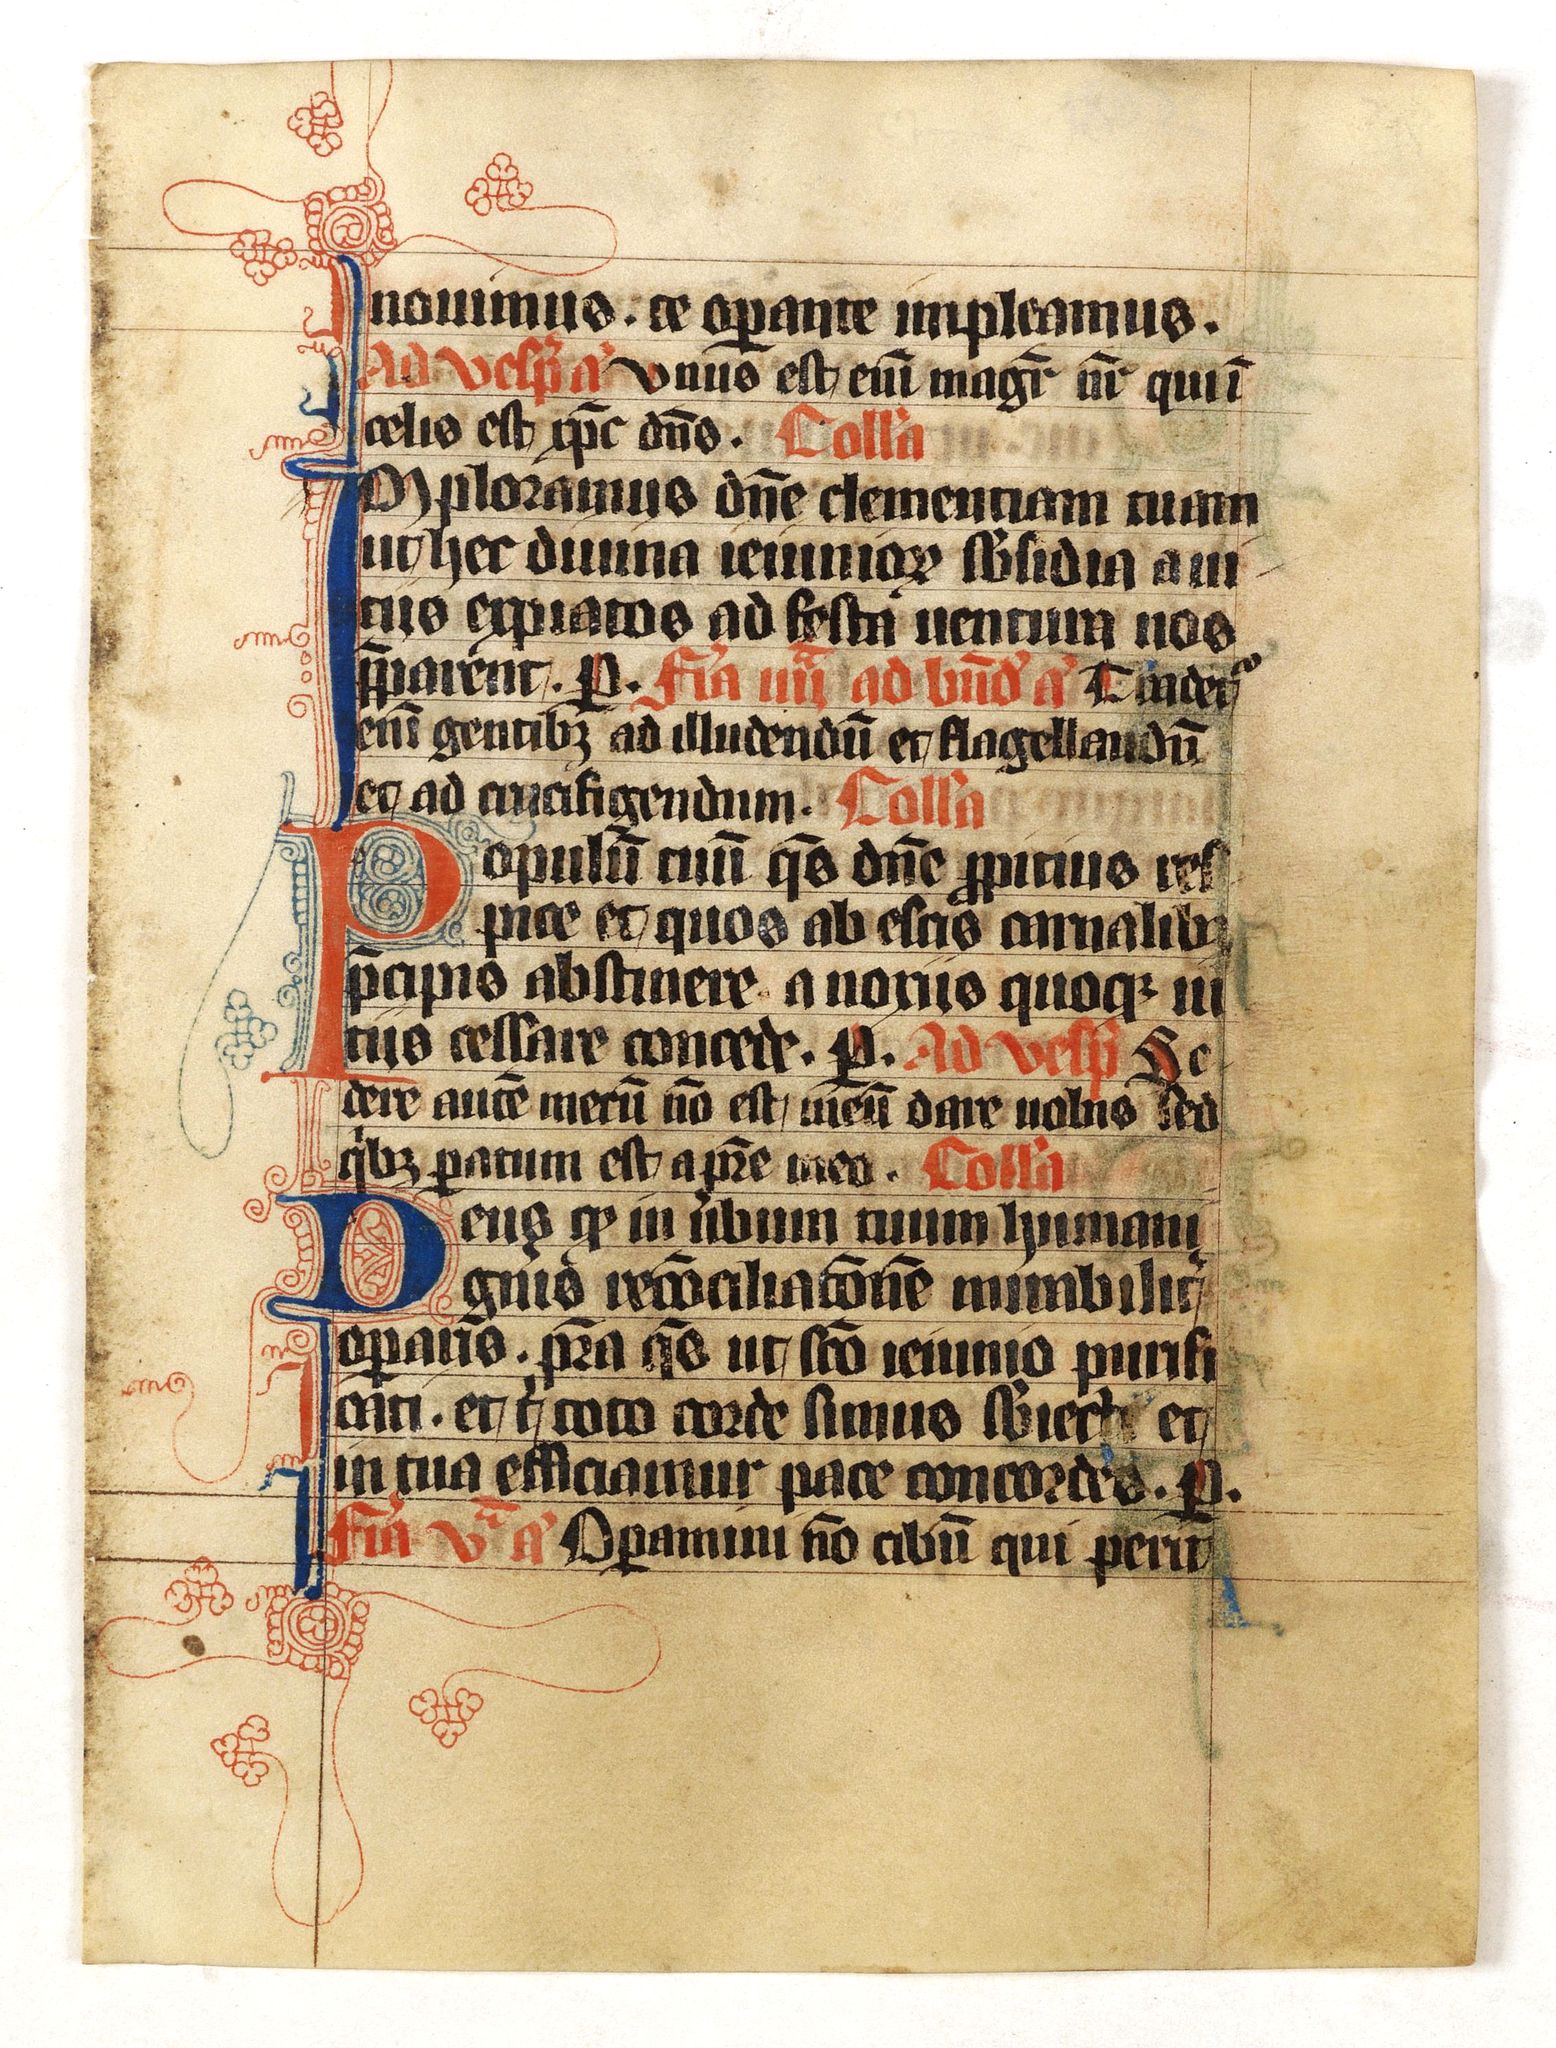 nouimus . te oꝑante impleamus .
Ad vesꝑ a᷑ Vnus est eni᷑ magr̄ nr̄ qui ī
celis est xp̄c dn̄s . Coll'a
Mploramus dn̄e clementiam tuam
ut hec diuina ieiunioꝝ sb̄sidia a ui
tijs expiatos ad festa uentura nos
p̄parent . P . Fr̄ia iiij ad bn̄d' a᷑ Tradet᷑
eū gentibꝫ ad illudendū et flagellandū
et ad crucifigendum . Coll'a
Populū tuū q̄s dn̄e ꝓpitius res
pice et quos ab escis carnalibꝫ
p̄cipis abstinere a noxijs quoqꝫ ui
tijs cessare concede . P . Ad vesꝑ Se
dere autē mecū nō est meū dare uobis sed
qͥbꝫ ꝑatum est a pr̄e meo . Coll'a
Deus qͥ in ūbum tuum humani
gn̄is recōciliatōnē mirabilit᷑
oꝑaris . pr̄a q̄s ut sc̄o ieiunio purifi
cati . et tͥ toto corde simus sb̄iecti et
in tua efficiamur pace concordes . P .
Fr̄ia vͣ a᷑ Oꝑamini nō cibū qui perit